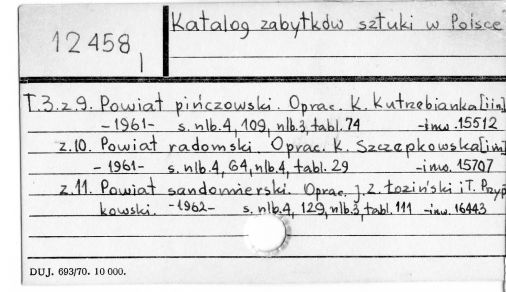 12458
I
Katalog zabytków sztuki w Polsce
T.3.z.9. Powiat pińczowski. Oprac. K. Kutrzebianka [i in]
-1961- s. nlb.4, 109, nlb.3, tabl. 74 -inw. 15512
z.10. Powiat radomski. Oprac. K. Szczepkowska [i in]
-1961- s. nlb.4, 64, nlb.4, tabl. 29 -inw. 15707
z.11. Powiat sandomierski. Oprac. J.Z. Łoziński i T. Przyp
kowski. -1962- s. nlb.4, 129, nlb.3, tabl. 111 -inw. 16443
DUJ. 693/70. 10 000.